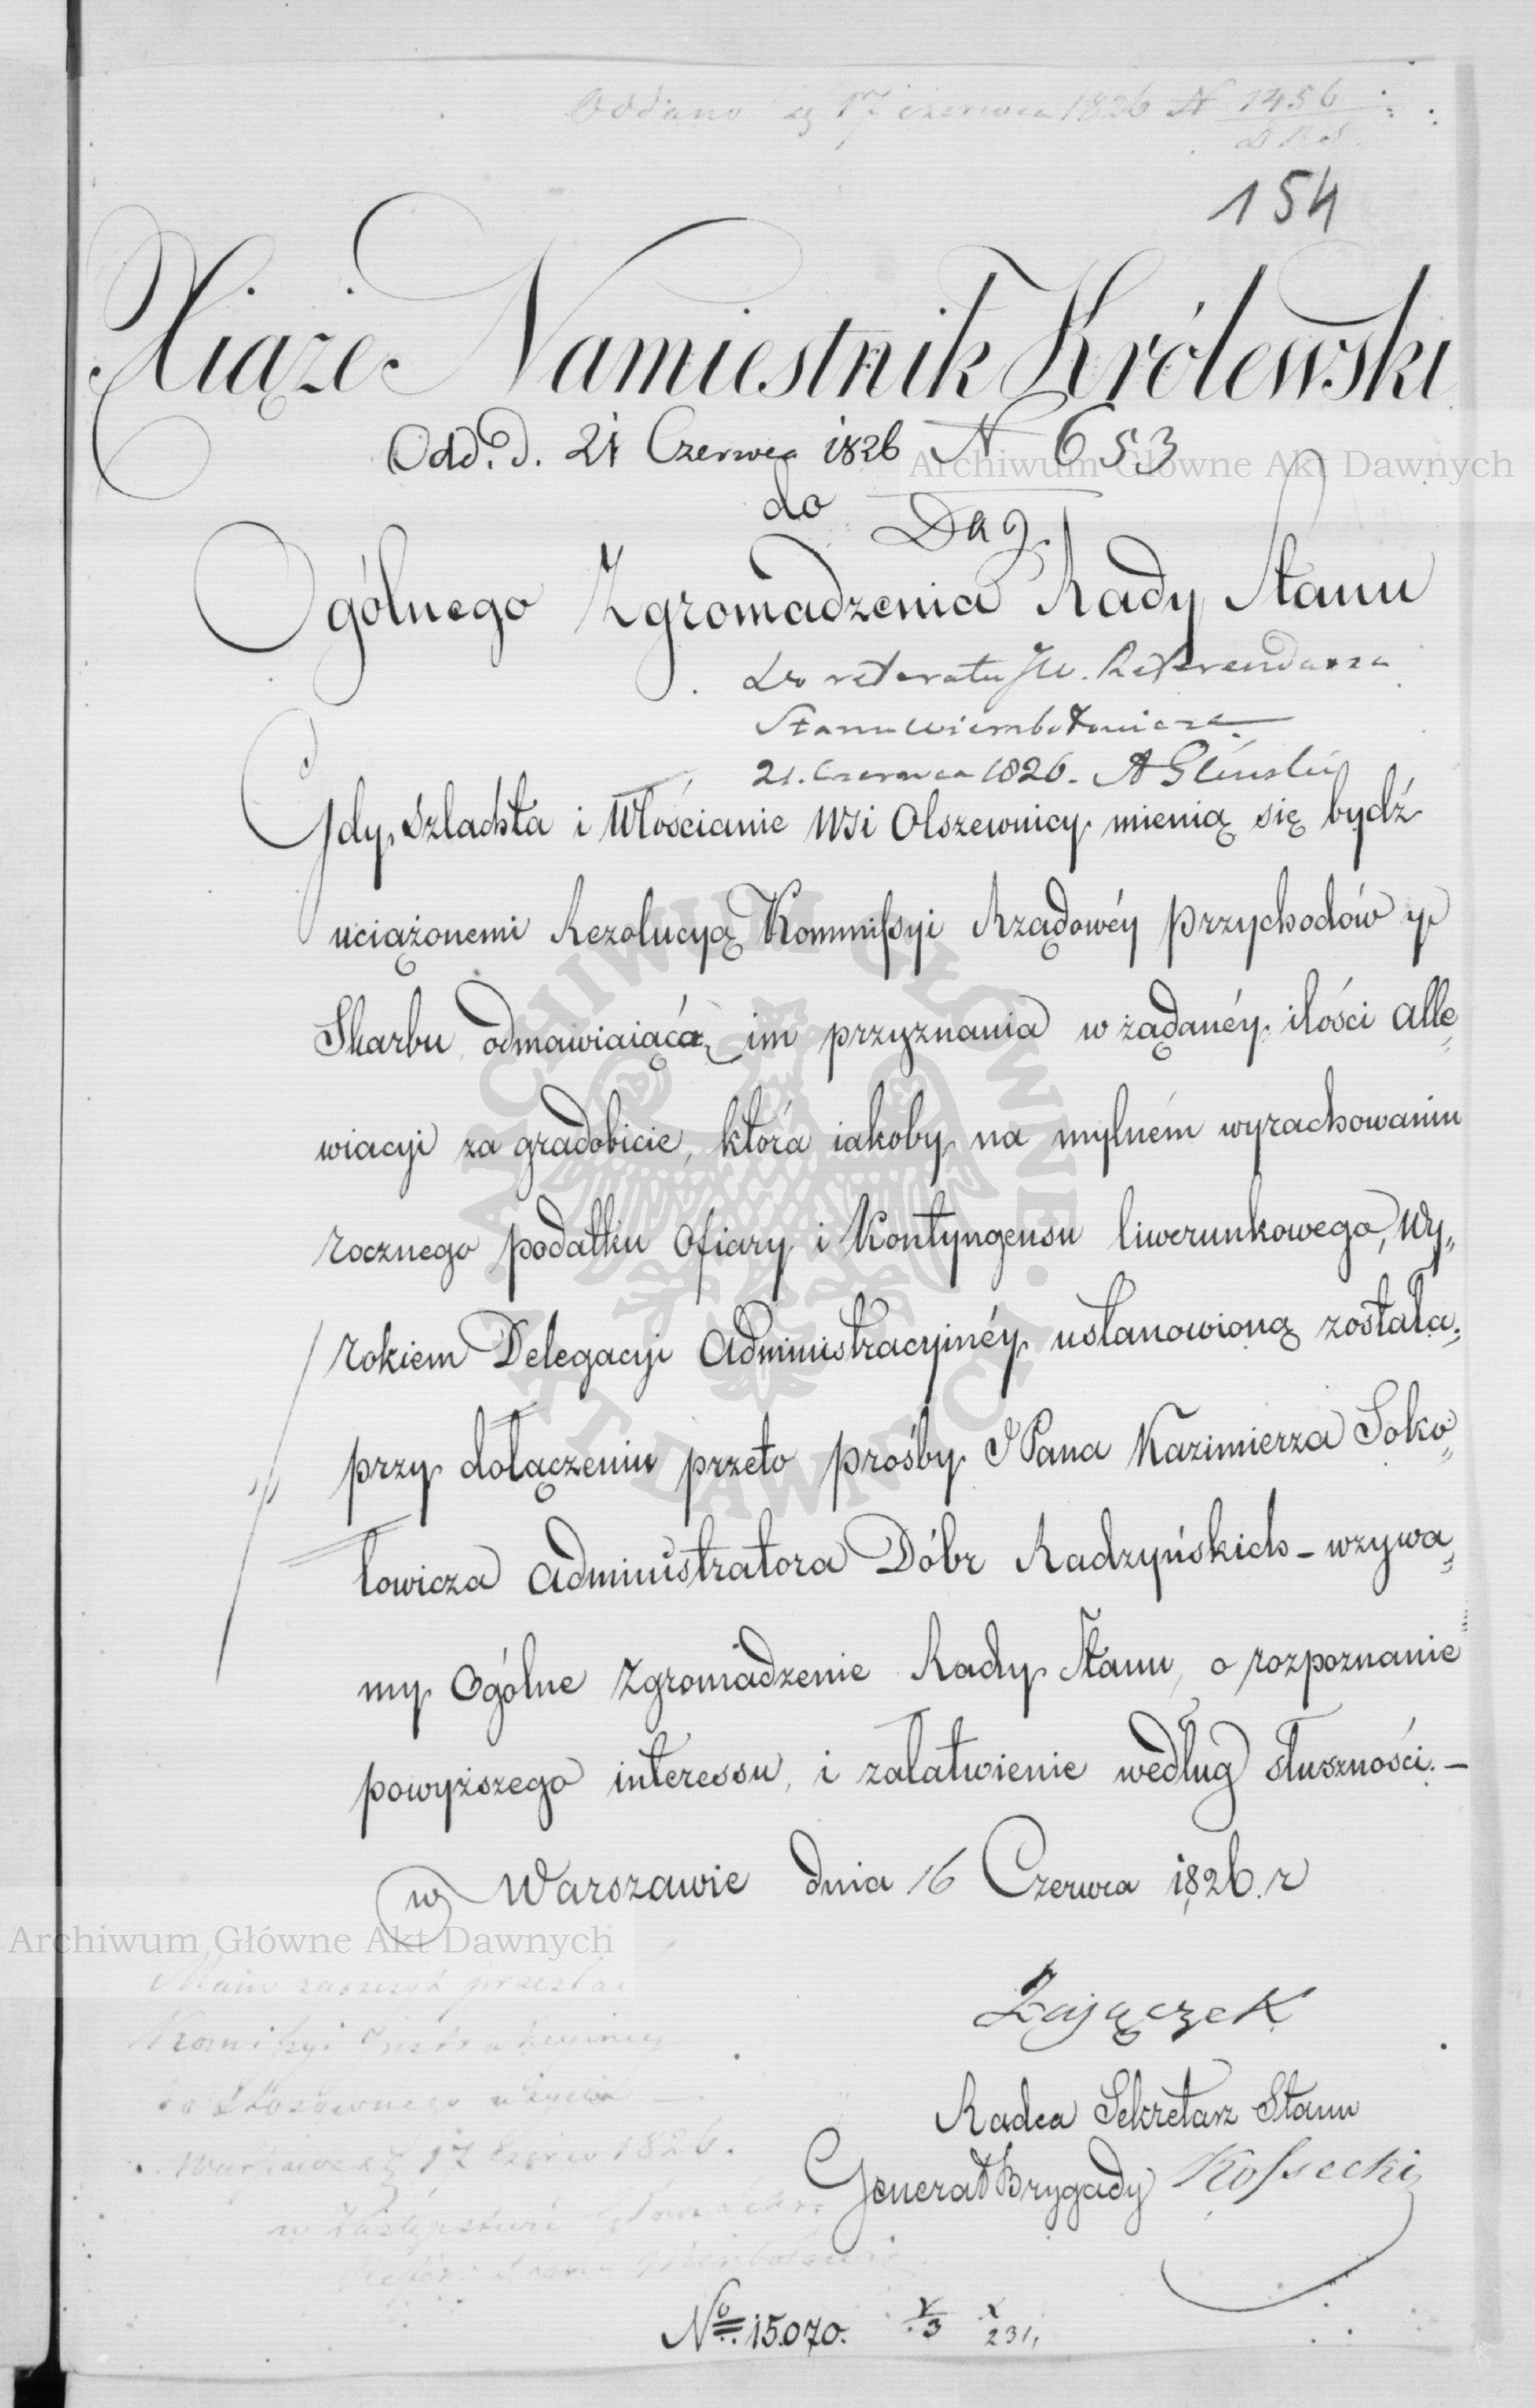 Oddano 17 czerwca 1826 N 1456
154
Xiąże Namiestnik Królewski
Odd. d. 21 Czerwca 1826 N 653
do
Ogólnego Zgromadzenia Rady Stanu
Do referatu JW. Referendarza
Stanu Wierzbołowicza
21. Czerwca 1826. A Gliński
Gdy Szlachta i Włościanie Wsi Olszewnicy mienią się bydź
uciążonemi Rezolucyą Kommissyi Rządowéy Przychodów y
Skarbu odmawiaiącą im przyznania w żądanéy ilości alle„
wiacyi za gradobicie, która iakoby na mylném wyrachowaniu
rocznego podatku Ofiary i Kontyngensu liwerunkowego, Wy„
rokiem Delegacyi Administracyinéy ustanowioną została;
przy dołączeniu przeto prośby JPana Kazimierza Soko„
łowicza Administratora Dóbr Radzyńskich – wzywa„
my Ogólne Zgromadzenie Rady Stanu, o rozpoznanie
powyższego interessu, i załatwienie według słuszności. –
w Warszawie dnia 16 Czerwca 1826. r
Mam zaszczyt przesłać
do stosownego użycia
17 Czerwca 1826.
w Zastępstwie
Zajączek
Radca Sekretarz Stanu
Generał Brygady Kossecki
No 15070. 231.
Archiwum Główne Akt Dawnych
Archiwum Główne Akt Dawnych
ARCHIWUM GŁÓWNE AKT DAWNYCH